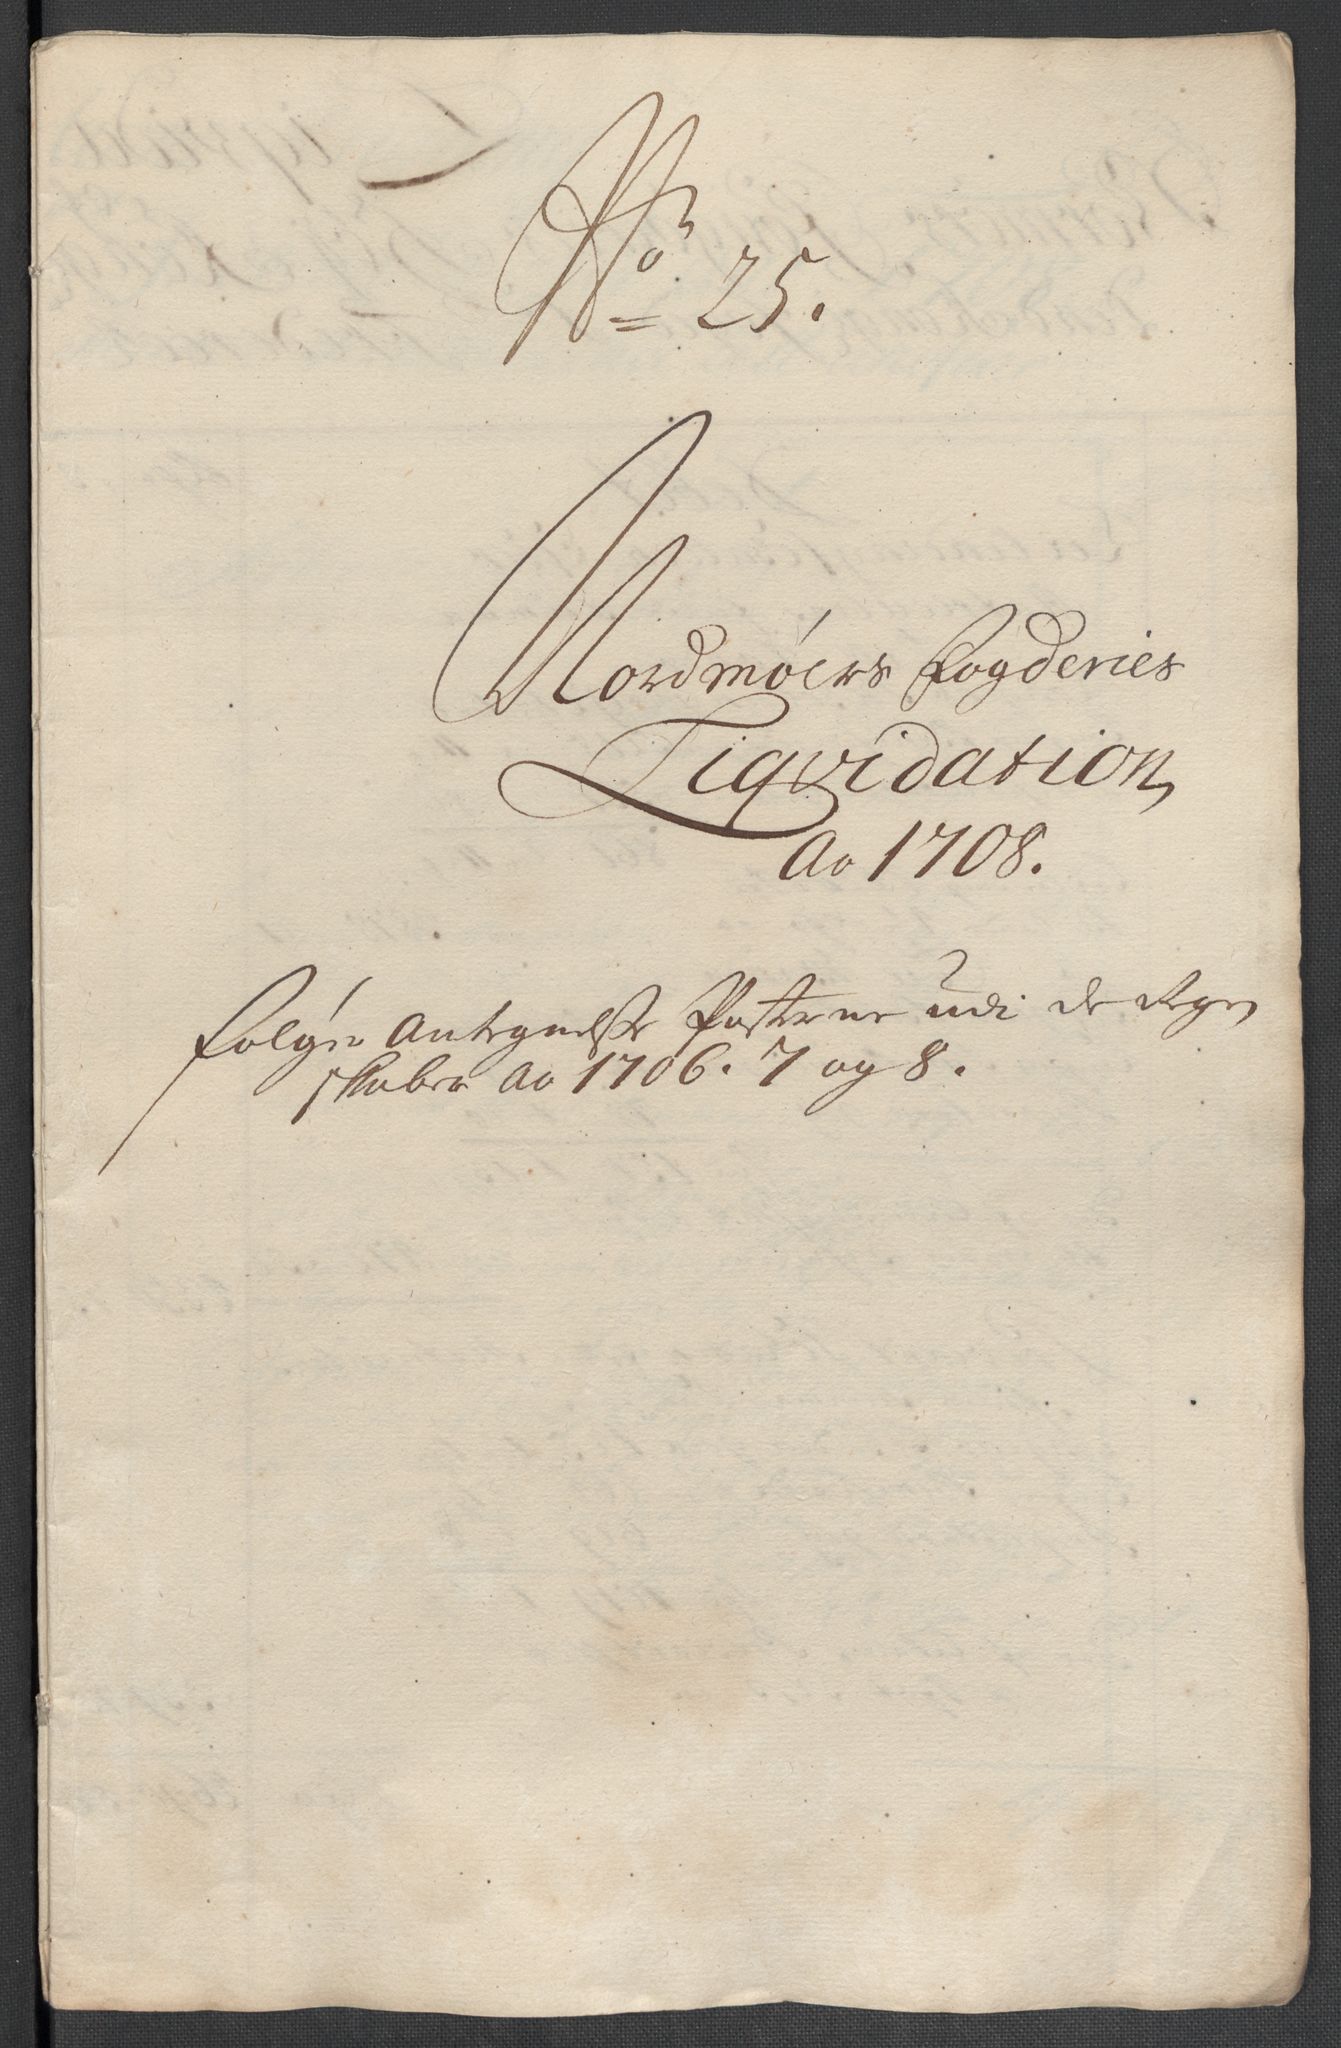 No 25.
Nordmøers Fogderies
Liqvidation,
Ao 1708.
følger Antegnelse Posterne udi de Regen
skaber Ao 1706. 7 og 8.